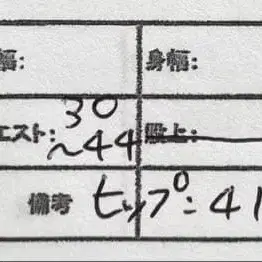 幅: 身幅:
エスト: 30
~44 股上:
備考 ヒップ: 41